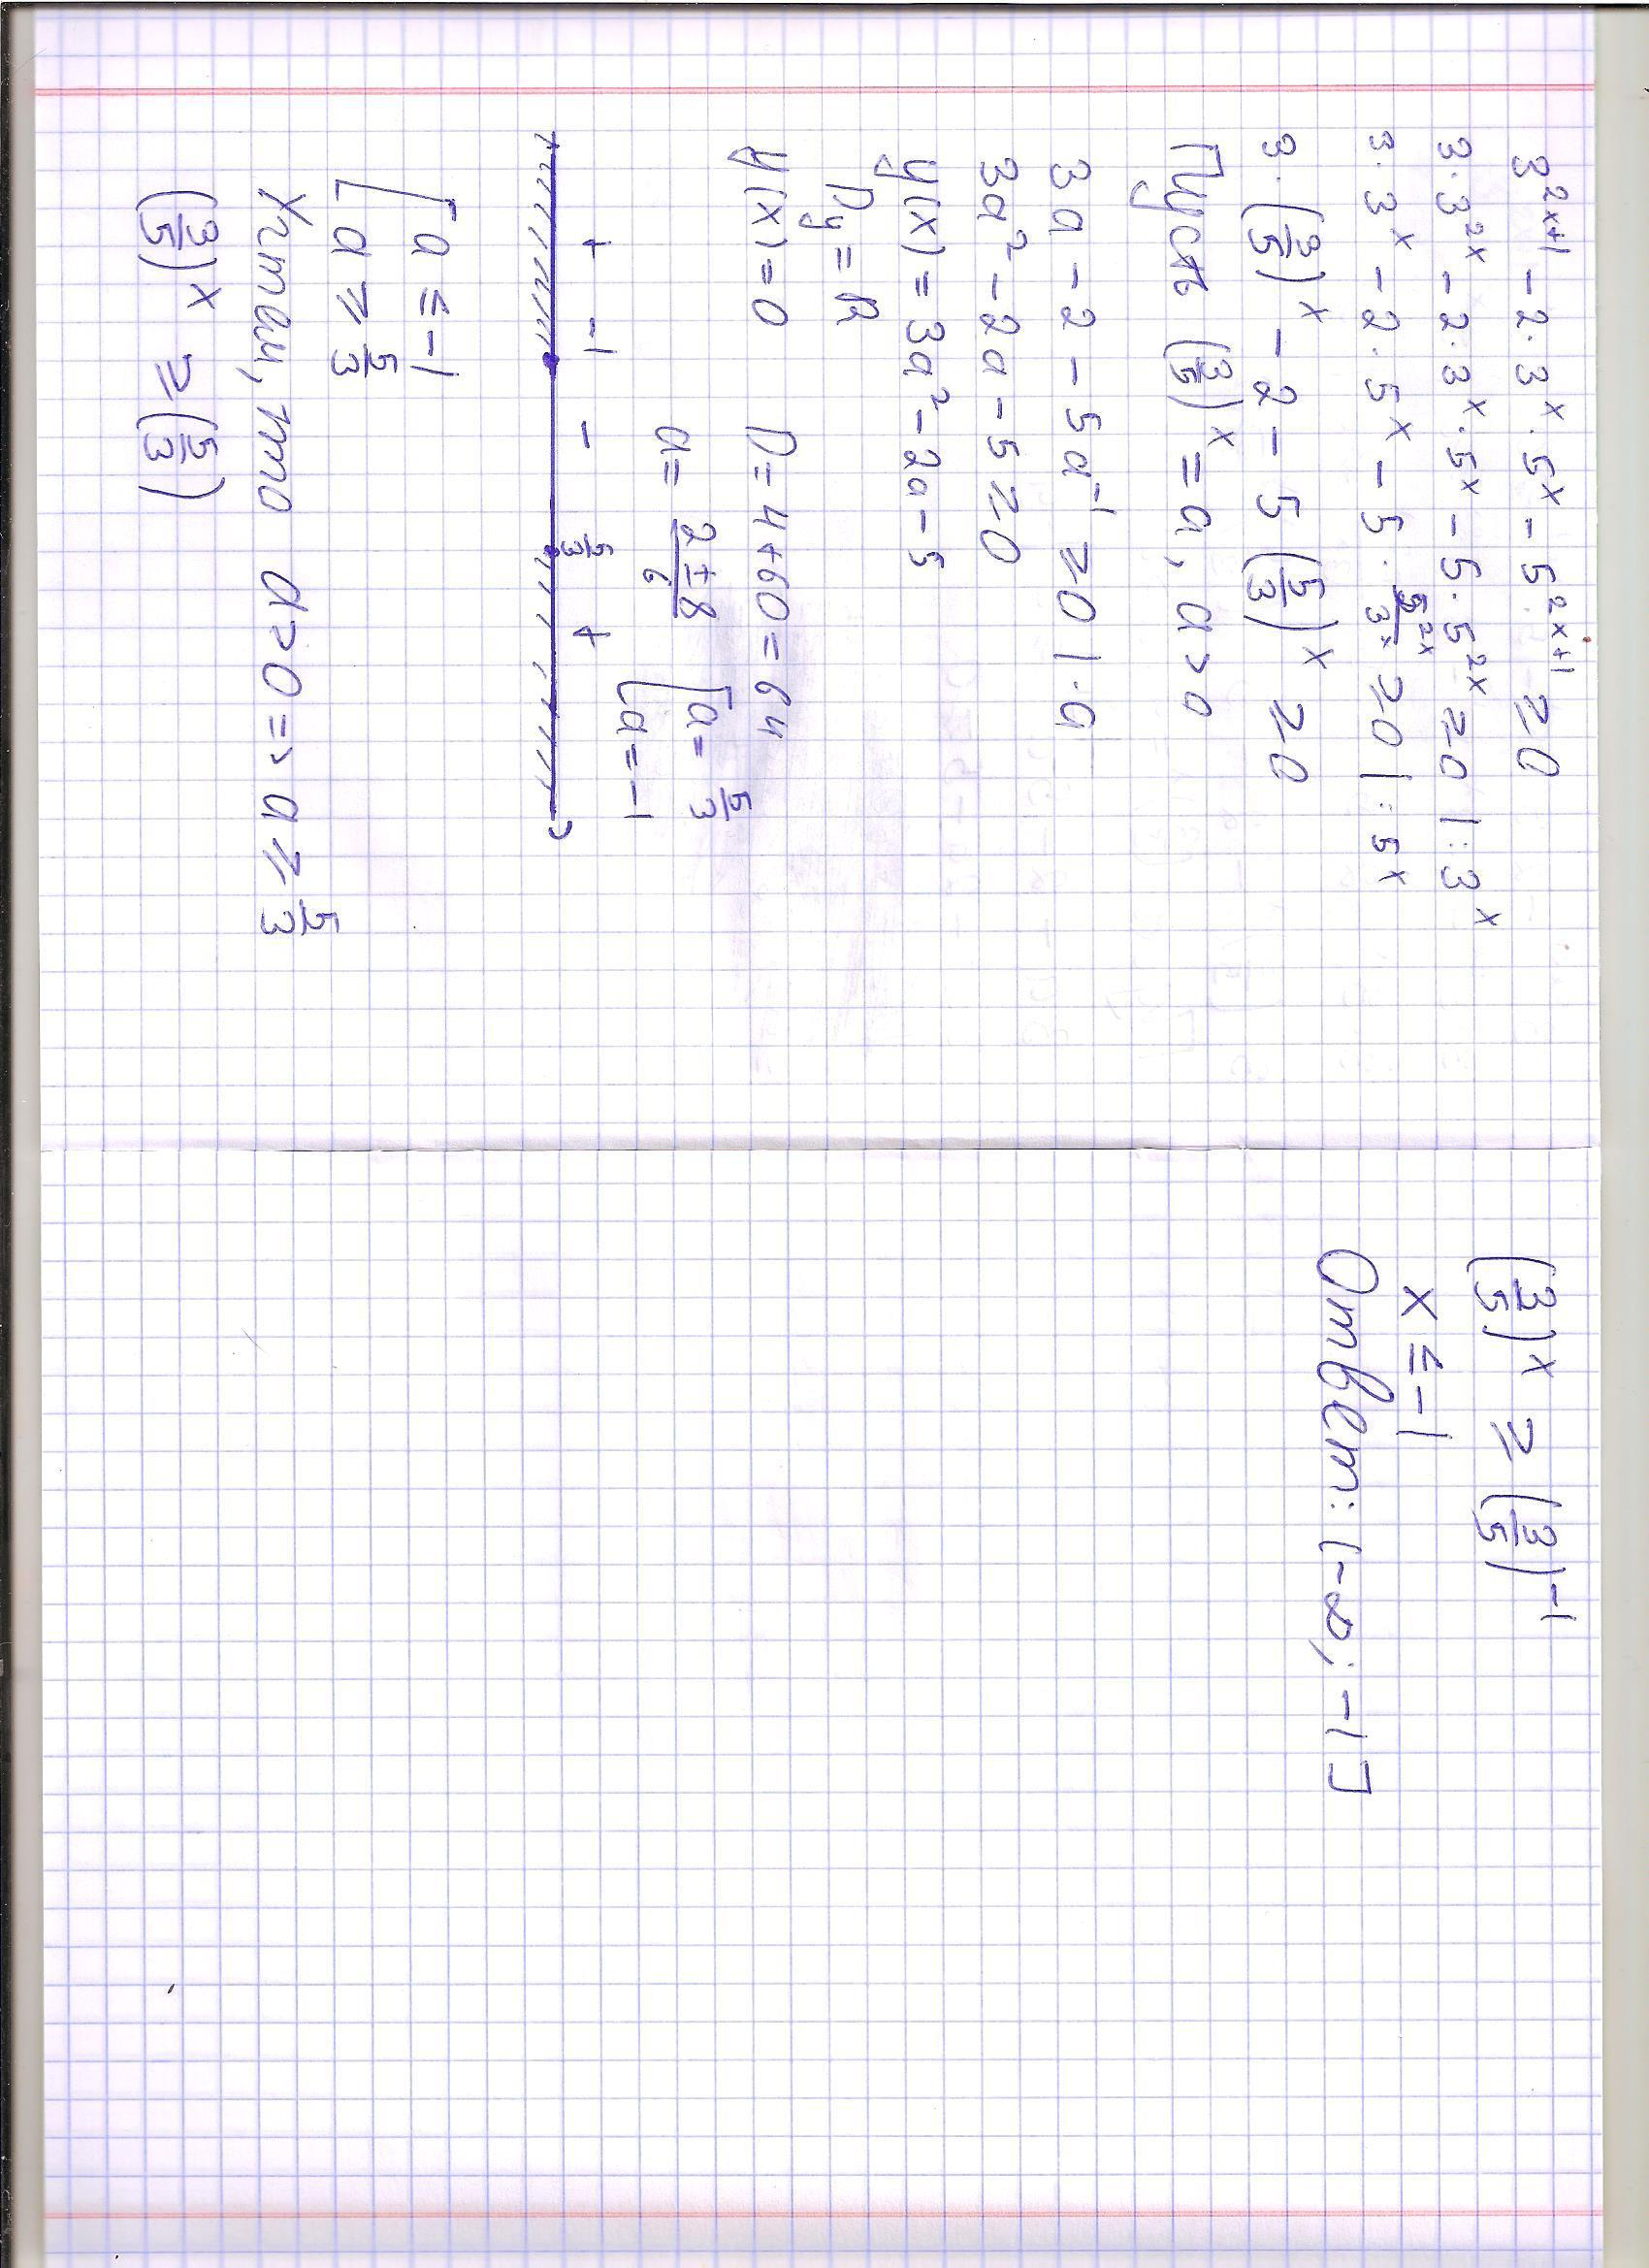 3^{2x+1} - 2·3^x·5^x - 5^{2x+1} ⩾ 0
3·3^{2x} - 2·3^x·5^x - 5·5^{2x} ⩾ 0 | :3^x
3·3^x - 2·5^x - 5·\frac{5^{2x}}{3^x} ⩾ 0 | :5^x
3·(\frac{3}{5})^x - 2 - 5(\frac{5}{3})^x ⩾ 0
Пусть (\frac{3}{5})^x = a, a>0
3a - 2 - 5a^{-1} ⩾ 0 | ·a
3a^2 - 2a - 5 ⩾ 0
y(x) = 3a^2 - 2a - 5
Dy = R
y(x) = 0 D = 4+60 = 64
a = \frac{2±8}{6} [a = \frac{5}{3} a = -1
+ -1 - \frac{5}{3} +
[a ≤ -1
a ⩾ \frac{5}{3}
Учтем, что a>0 => a ⩾ \frac{5}{3}
(\frac{3}{5})^x ⩾ (\frac{5}{3})
(\frac{3}{5})^x ⩾ (\frac{3}{5})^{-1}
x ≤ -1
Ответ: (-∞; -1]